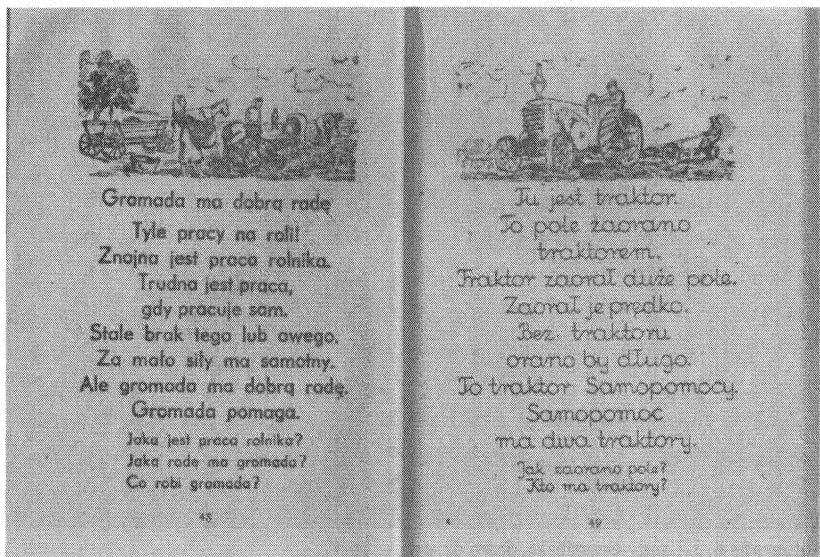 Gromada ma dobrą radę
Tyle pracy na roli!
Znojna jest praca rolnika.
Trudna jest praca,
gdy pracuje sam.
Stale brak tego lub owego.
Za mało siły ma samotny.
Ale gromada ma dobrą radę.
Gromada pomaga.
Jaka jest praca rolnika?
Jaką radę ma gromada?
Co robi gromada?
Tu jest traktor.
To pole zaorano
traktorem.
Traktor zaorał duże pole.
Zaorał je prędko.
Bez traktoru
orano by długo.
To traktor Samopomocy.
Samopomoc
ma dwa traktory.
Jak zaorano pole?
Kto ma traktory?
49